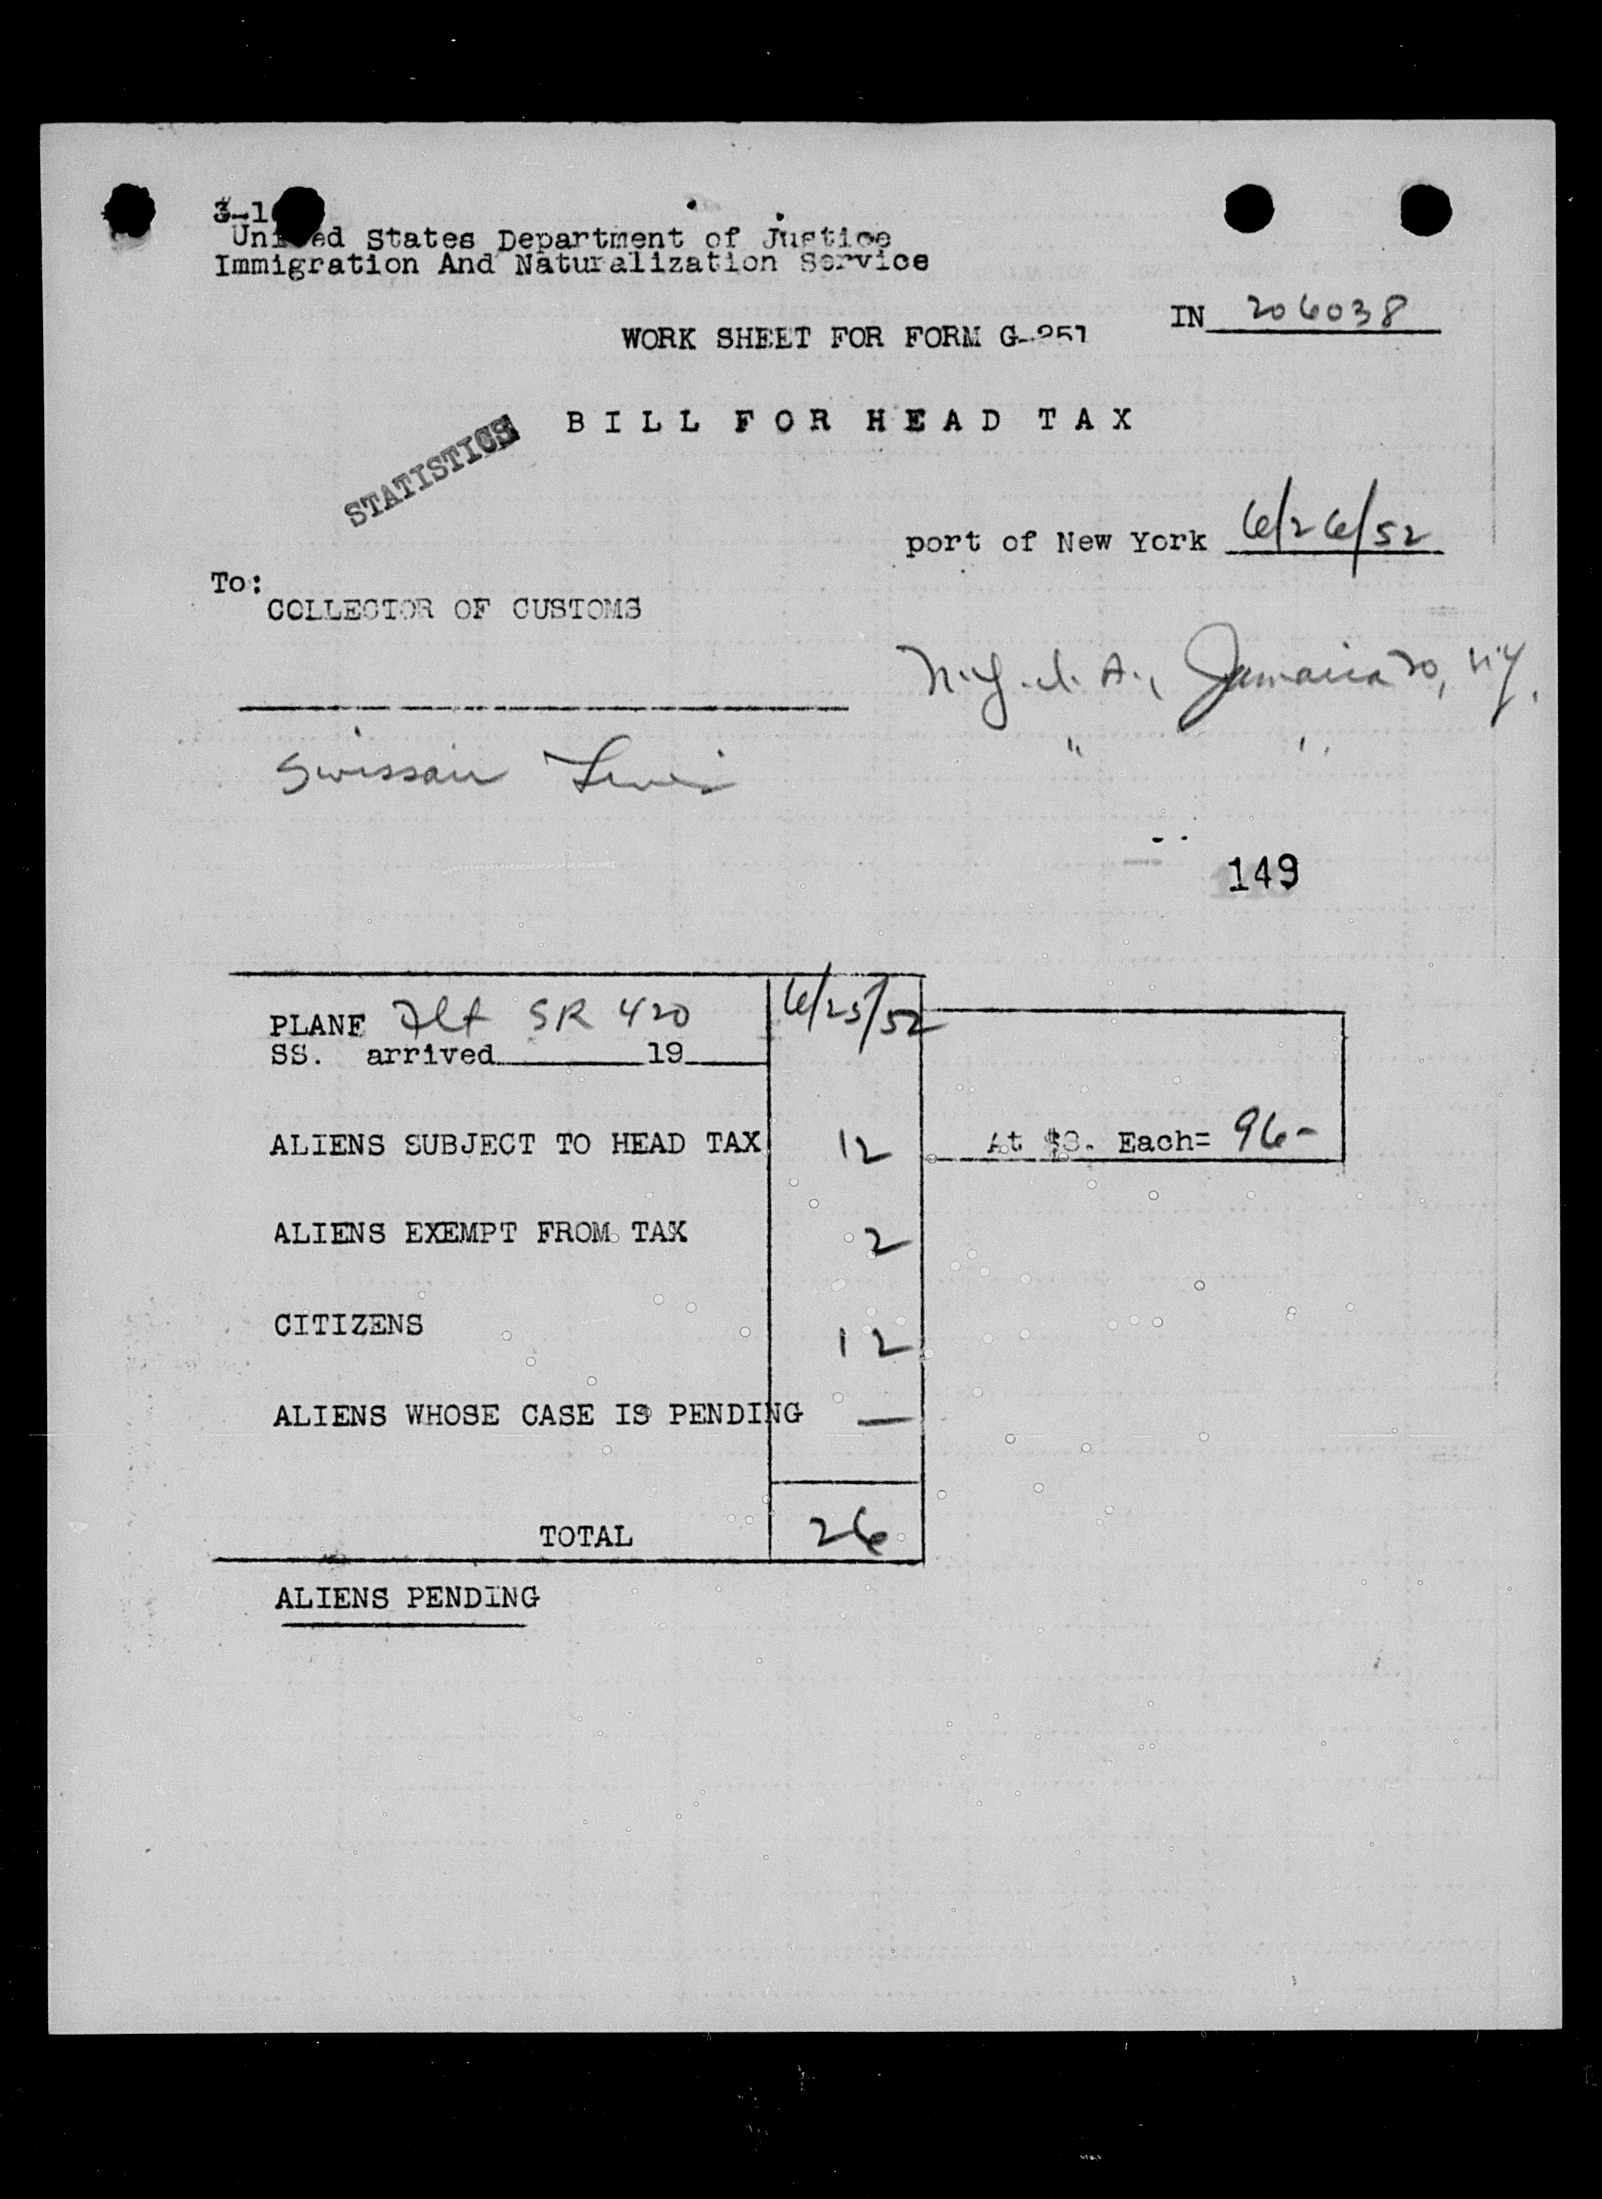 3-1
United States Department of Justice
Immigration And Naturalization Service
IN 206038
WORK SHEET FOR FORM G-251
BILL FOR HEAD TAX
STATISTICS
port of New York 6/26/52
To:
COLLECTOR OF CUSTOMS
N.Y.I.A., Jamaica 30, N.Y.
" "
Swissair Lines
149
PLANE Flt SR 420 6/25/52
SS. arrived 19
ALIENS SUBJECT TO HEAD TAX 12 At $8. Each= 96-
ALIENS EXEMPT FROM TAX 2
CITIZENS 12
ALIENS WHOSE CASE IS PENDING —
TOTAL 26
ALIENS PENDING